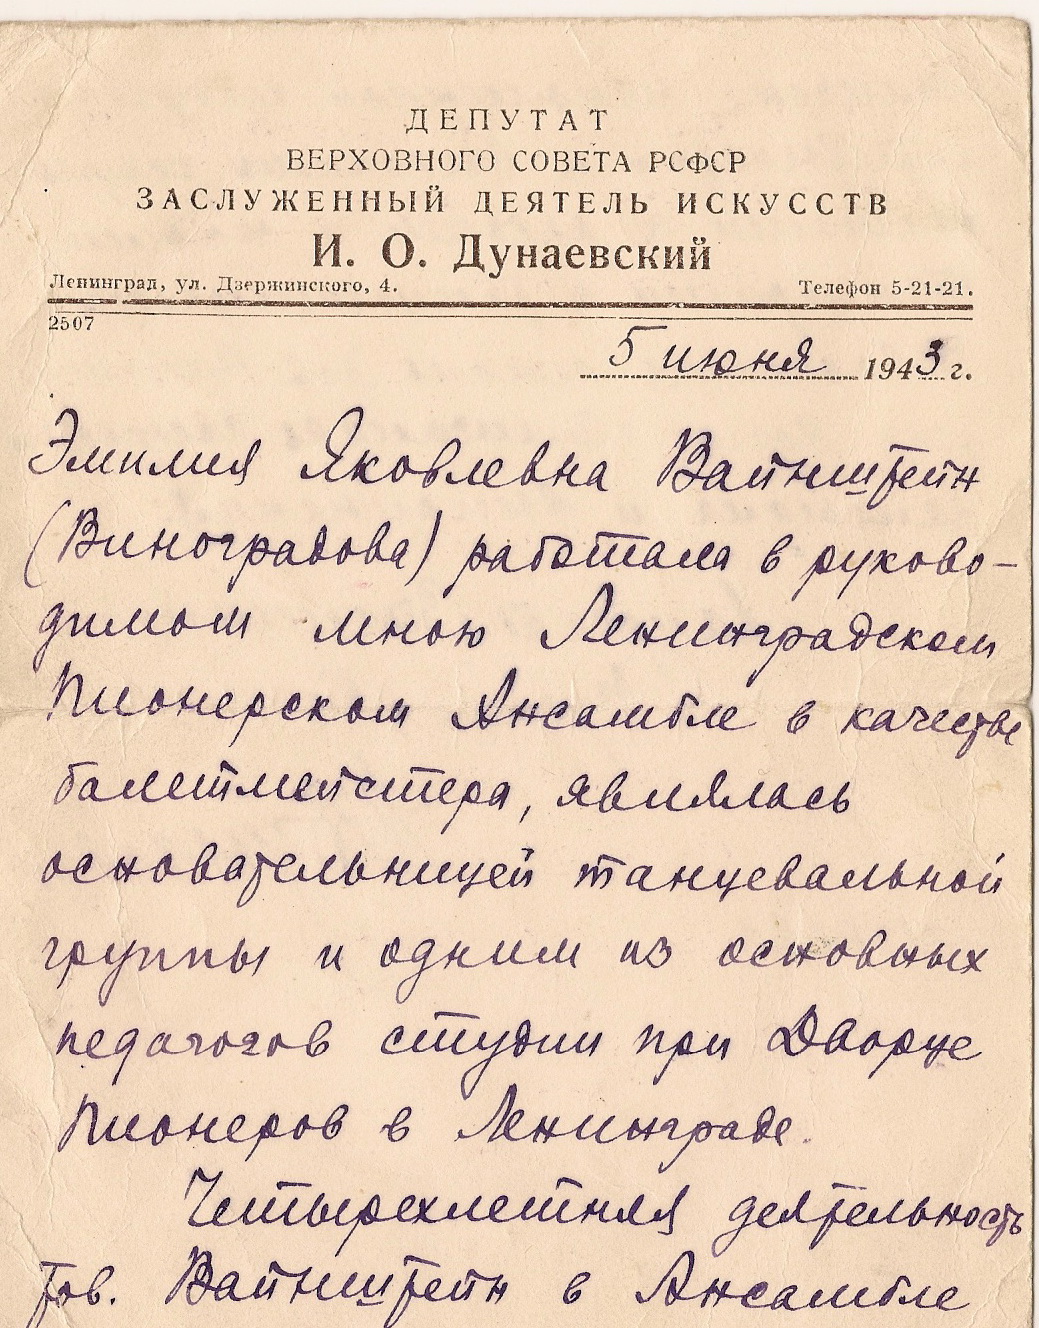 ДЕПУТАТ
ВЕРХОВНОГО СОВЕТА РСФСР
ЗАСЛУЖЕННЫЙ ДЕЯТЕЛЬ ИСКУССТВ
И. О. Дунаевский
Ленинград, ул. Дзержинского, 4. Телефон 5-21-21.
2507
5 июня 1943 г.
Эмилия Яковлевна Вайнштейн
(Виноградова) работала в руково-
димом мною Ленинградском
Пионерском Ансамбле в качестве
балетмейстера, являлась
основательницей танцевальной
группы и одним из основных
педагогов студии при Дворце
Пионеров в Ленинграде.
Четырехлетняя деятельность
тов. Вайнштейн в Ансамбле